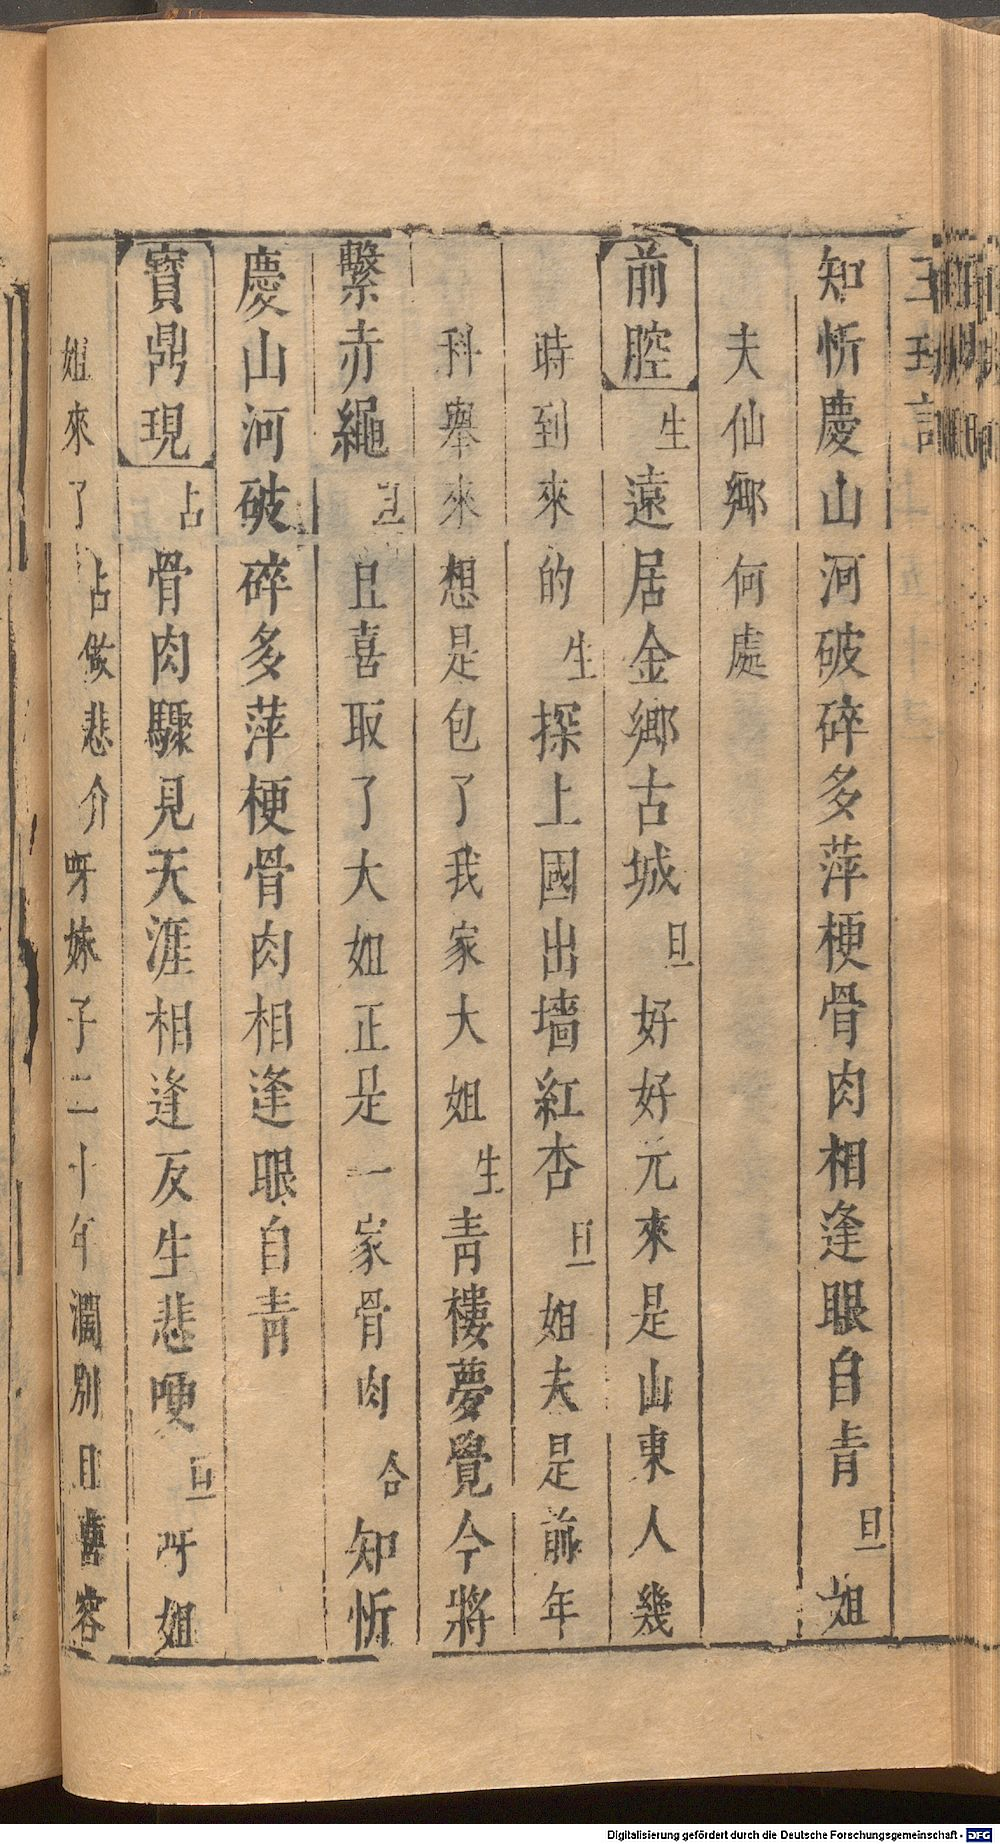 知忻慶山河破碎多萍梗骨肉相逢眼自青旦姐
夫仙鄉何處
前腔生遠居金鄉古城旦好好元來是山東人幾
時到來的生探上國出墻紅杏旦姐夫是前年
科舉來想是包了我家大姐生青樓夢覺今將
繫赤繩旦且喜取了大姐正是一家骨肉合知忻
慶山河破碎多萍梗骨肉相逢眼自青
寶鼎現占骨肉驟見天涯相逢反生悲哽旦呀姐
姐來了占做悲介呀妹子二十年濶別且喜容
Digitalisierung gefördert durch die Deutsche Forschungsgemeinschaft - DFG